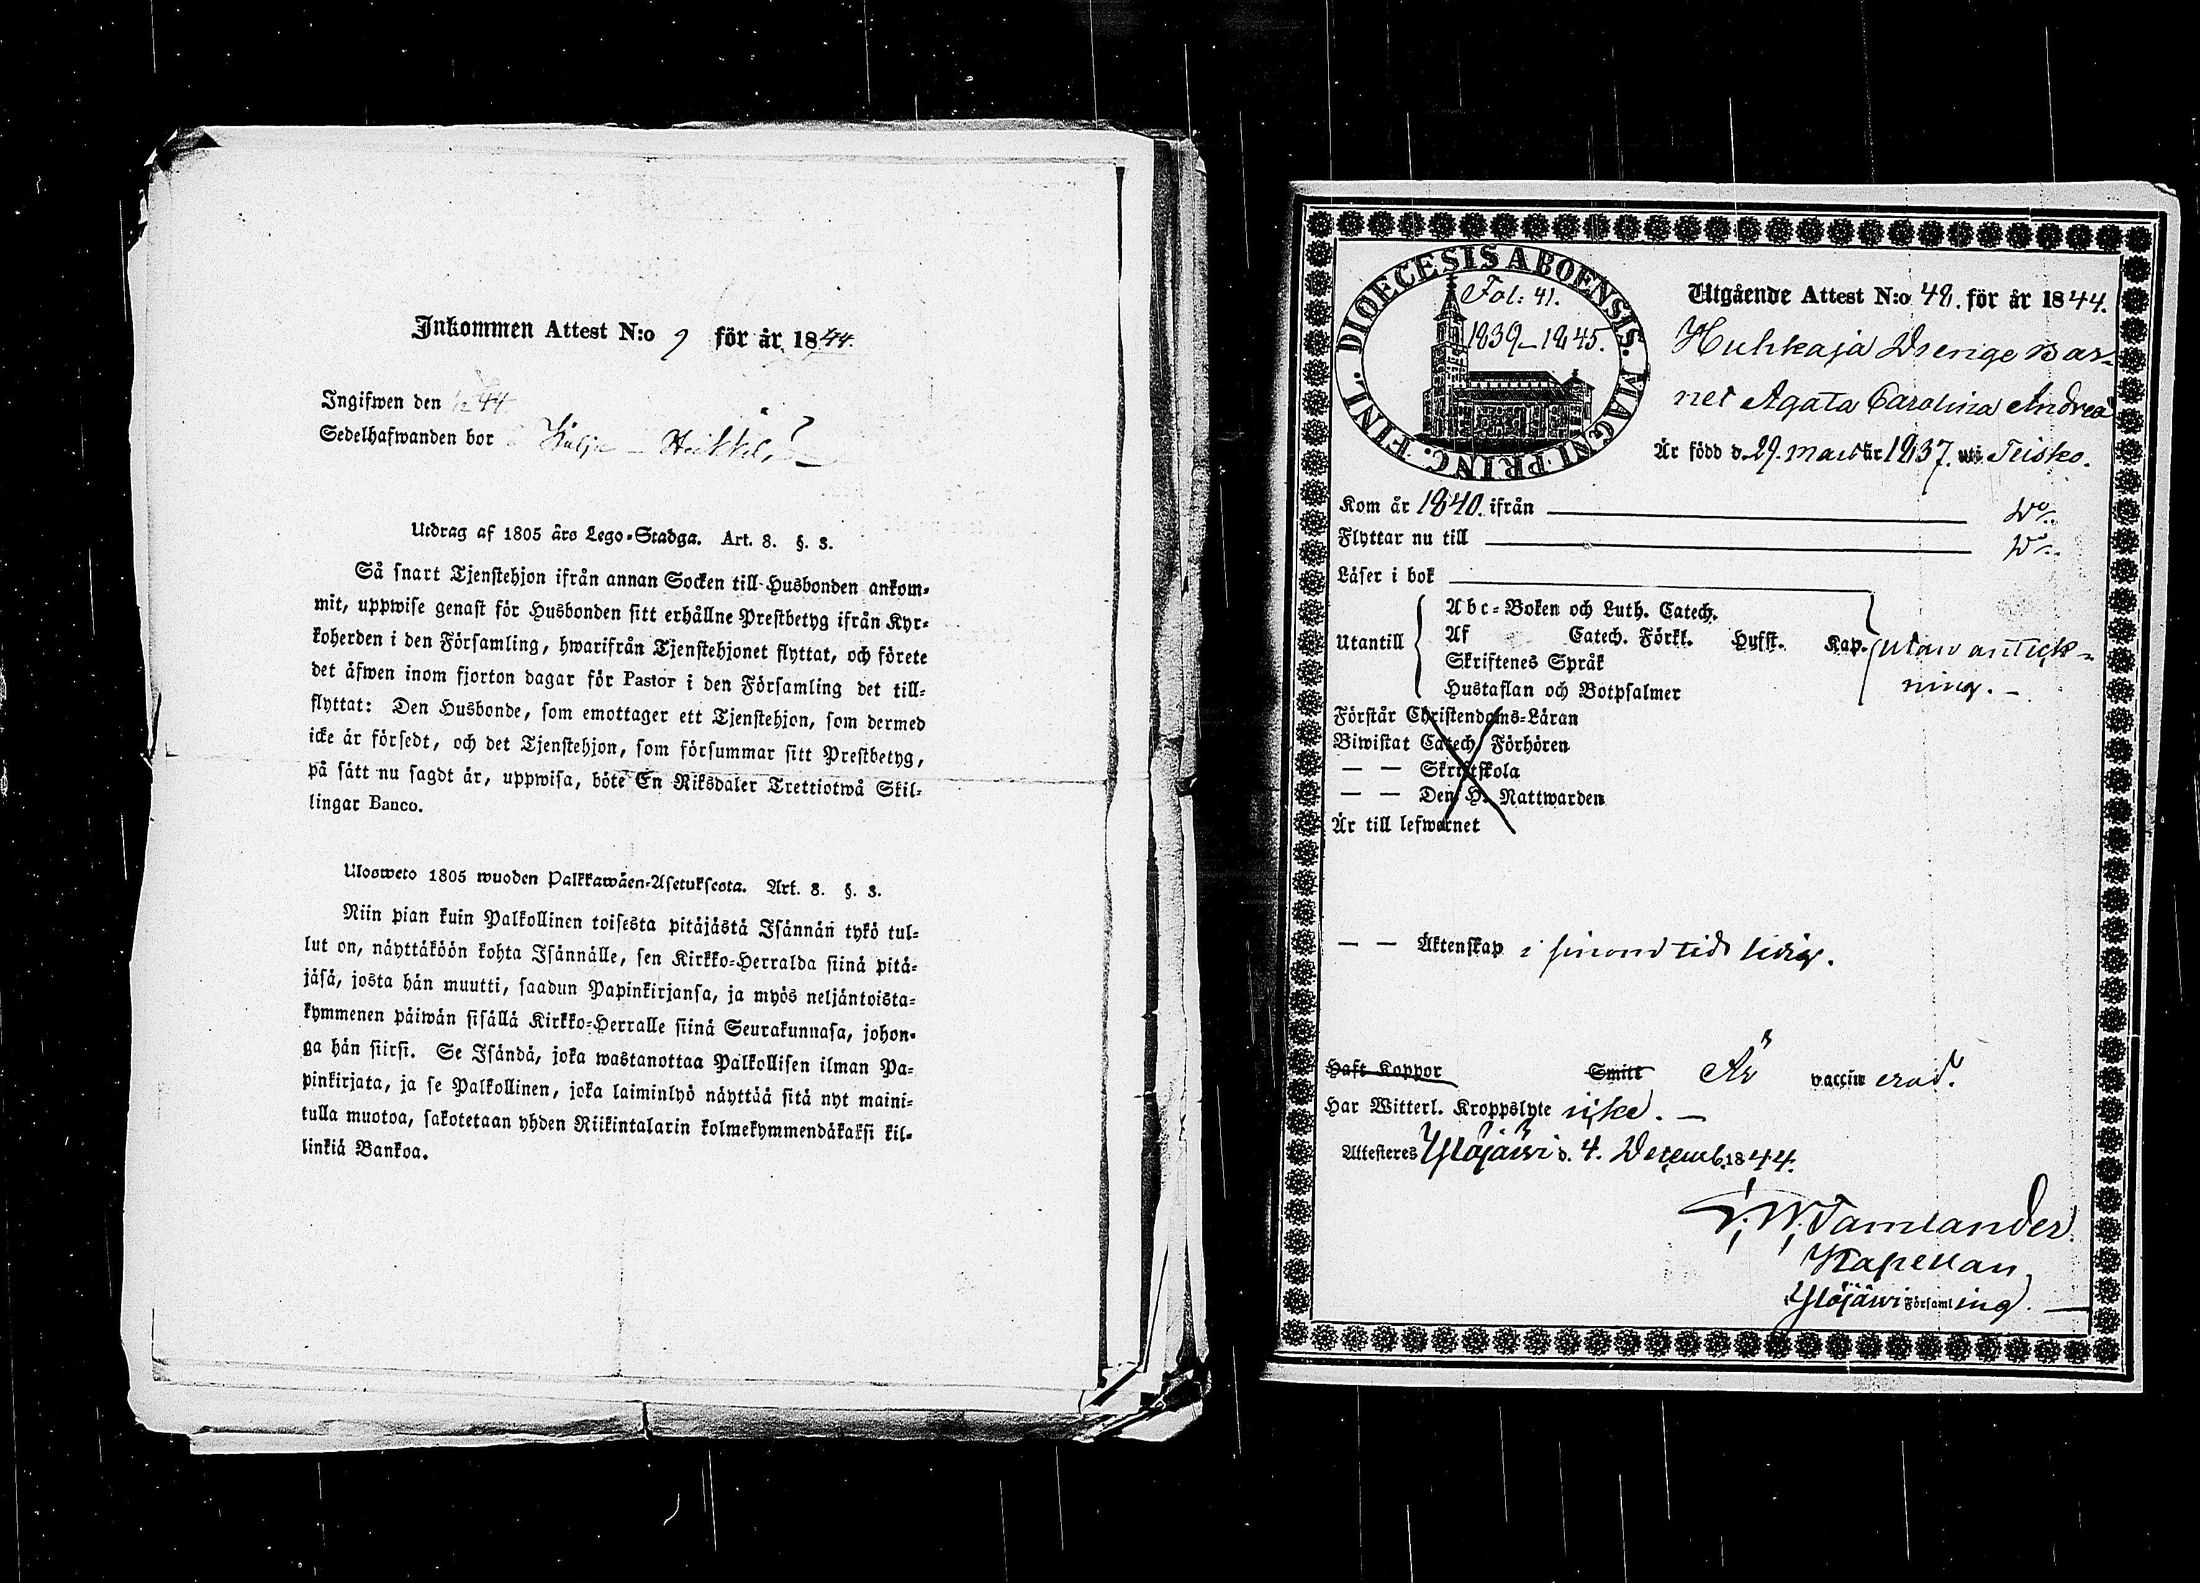 Inkommen Attest N:o 9 för år 1844.
Ingifwen den 44.
Sedelhafwanden bor Kulju Heikkilä
Utdrag af 1805 års Lego-Stadga. Art. 8. §. 3.
Så snart Tjenstehjon ifrån annan Socken till Husbonden ankom-
mit, uppwise genast för Husbonden sitt erhållne Prestbetyg ifrån Kyr-
koherden i den Församling, hwarifrån Tjenstehjonet flyttat, och förete
det äfwen inom fjorton dagar för Pastor i den Församling det till-
flyttat: Den Husbonde, som emottager ett Tjenstehjon, som dermed
icke är försedt, och det Tjenstehjon, som försummar sitt Prestbetyg,
på sätt nu sagdt är, uppwisa, böte En Riksdaler Trettiotwå Skil-
lingar Banco.
Ulosweto 1805 wuoden Palkkawäen-Asetuksesta. Art. 8. §. 3.
Niin pian kuin Palkollinen toisesta pitäjästä Isännän tykö tul-
lut on, näyttäköön kohta Isännälle, sen Kirkko-Herralda siinä pitä-
jäsä, josta hän muutti, saadun Papinkirjansa, ja myös neljäntoista-
kymmenen päiwän sisällä Kirkko-Herralle siinä Seurakunnasa, johon-
ga hän siirsi. Se Isändä, joka wastanottaa Palkollisen ilman Pa-
pinkirjata, ja se Palkollinen, joka laiminlyö näyttää sitä nyt maini-
tulla muotoa, sakotetaan yhden Riikintalarin kolmekymmendäkaksi kil-
linkiä Bankoa.
DIOECESIS ABOENSIS. MAGNI PRINC. FINL.
Fol: 41.
1839–1845.
Utgående Attest N:o 48. för år 1844.
Huhkaja Drenge Bar-
net Agata Carolina Andrea
Är född d. 29. Mars år 1837. uti Teisko.
Kom år 1840. ifrån Do.
Flyttar nu till Do.
Läser i bok
Utantill
Abc-Boken och Luth. Catech.
Af Catech. Förkl. Hufst. Kap.
Skriftenes Språk
Hustaflan och Botpsalmer
utan anteck-
ning. –
Förstår Christendoms-Läran
Biwistat Catech. Förhören
— — Skriftskola
— — Den H. Nattwarden
Är till lefwernet
— — Äktenskap i sinom tid ledig.
Haft Koppor Smitt Är vaccinerad.
Har Witterl. Kroppslyte icke. –
Attesteres Ylöjärwi d. 4. Decemb. 1844.
W. Tamlander.
Kapellan
Ylöjärwi Församling.